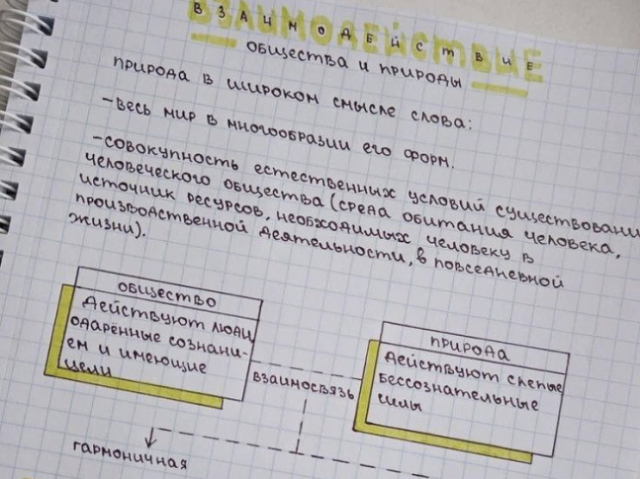 ВЗАИМОДЕЙСТВИЕ
ОБЩЕСТВА И ПРИРОДЫ
ПРИРОДА В ШИРОКОМ СМЫСЛЕ СЛОВА:
-ВЕСЬ МИР В МНОГООБРАЗИИ ЕГО ФОРМ.
-СОВОКУПНОСТЬ ЕСТЕСТВЕННЫХ УСЛОВИЙ СУЩЕСТВОВАНИ
ЧЕЛОВЕЧЕСКОГО ОБЩЕСТВА (СРЕДА ОБИТАНИЯ ЧЕЛОВЕКА,
ИСТОЧНИК РЕСУРСОВ, НЕОБХОДИМЫХ ЧЕЛОВЕКУ В
ПРОИЗВОДСТВЕННОЙ ДЕЯТЕЛЬНОСТИ, В ПОВСЕДНЕВНОЙ
ЖИЗНИ).
ОБЩЕСТВО
ДЕЙСТВУЮТ ЛЮДИ,
ОДАРЁННЫЕ СОЗНАНИ-
ЕМ И ИМЕЮЩИЕ
ЦЕЛИ
ВЗАИМОСВЯЗЬ
ПРИРОДА
ДЕЙСТВУЮТ СЛЕПЫЕ,
БЕССОЗНАТЕЛЬНЫЕ
СИЛЫ
ГАРМОНИЧНАЯ